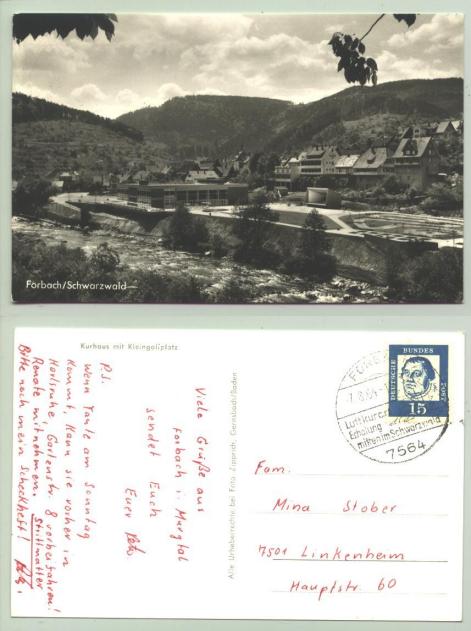 Forbach/Schwarzwald
Kurhaus mit Kleingolfplatz
Viele Grüße aus
Forbach i. Murgtal
sendet Euch
Euer
P.S.
Wenn Tante am Sonntag
kommt, kann sie vorher in
Karlsruhe Gartenstr. 8 vorbeifahren!
Renate mitnehmen. Strittmatter
Bitte noch mein Scheckheft!
Alle Urheberrechte bei Fritz Zipprich, Gernsbach/Baden
DEUTSCHE
BUNDES
POST
15
Luftkurort
Erholung
mitten im Schwarzwald
7564
Fam.
Mina Stober
7501 Linkenheim
Hauptstr. 60